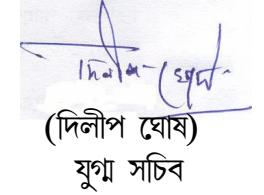 দিলীপ ঘোষ
(দিলীপ ঘোষ)
যুগ্ম সচিব